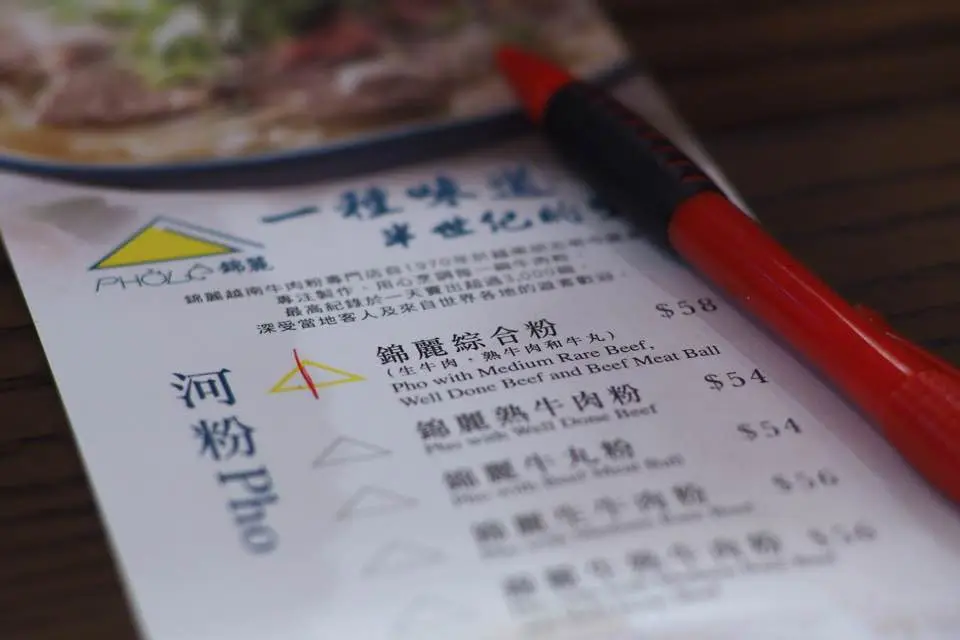 一種味道
半世紀的
PHÓLÊ 錦麗
錦麗越南牛肉粉專門店自1970年於越
專注製作，用心烹調每一碗牛肉粉，
最高紀錄於一天賣出超過3,000碗，
深受當地客人及來自世界各地的遊客歡迎。
河粉 Pho
錦麗綜合粉 $58
(生牛肉，熟牛肉和牛丸)
Pho with Medium Rare Beef,
Well Done Beef and Beef Meat Ball
錦麗熟牛肉粉 $54
Pho with Well Done Beef
錦麗牛丸粉 $54
Pho with Beef Meat Ball
錦麗生牛肉粉 $56
Pho with Medium Rare Beef
錦麗生熟牛肉粉 $56